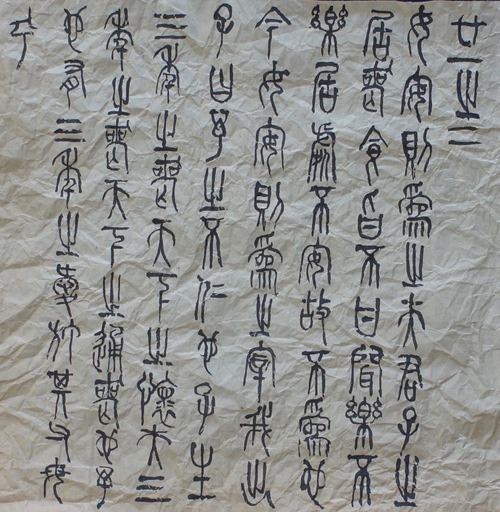 廿一之二
女安則爲之夫君子之
居喪食旨不甘聞樂不
樂居處不安故不爲也
今女安則爲之宰我出
子曰予之不仁也子生
三年之喪天下之懷夫三
年之喪天下之通喪也予
也有三年之愛於其父母
乎